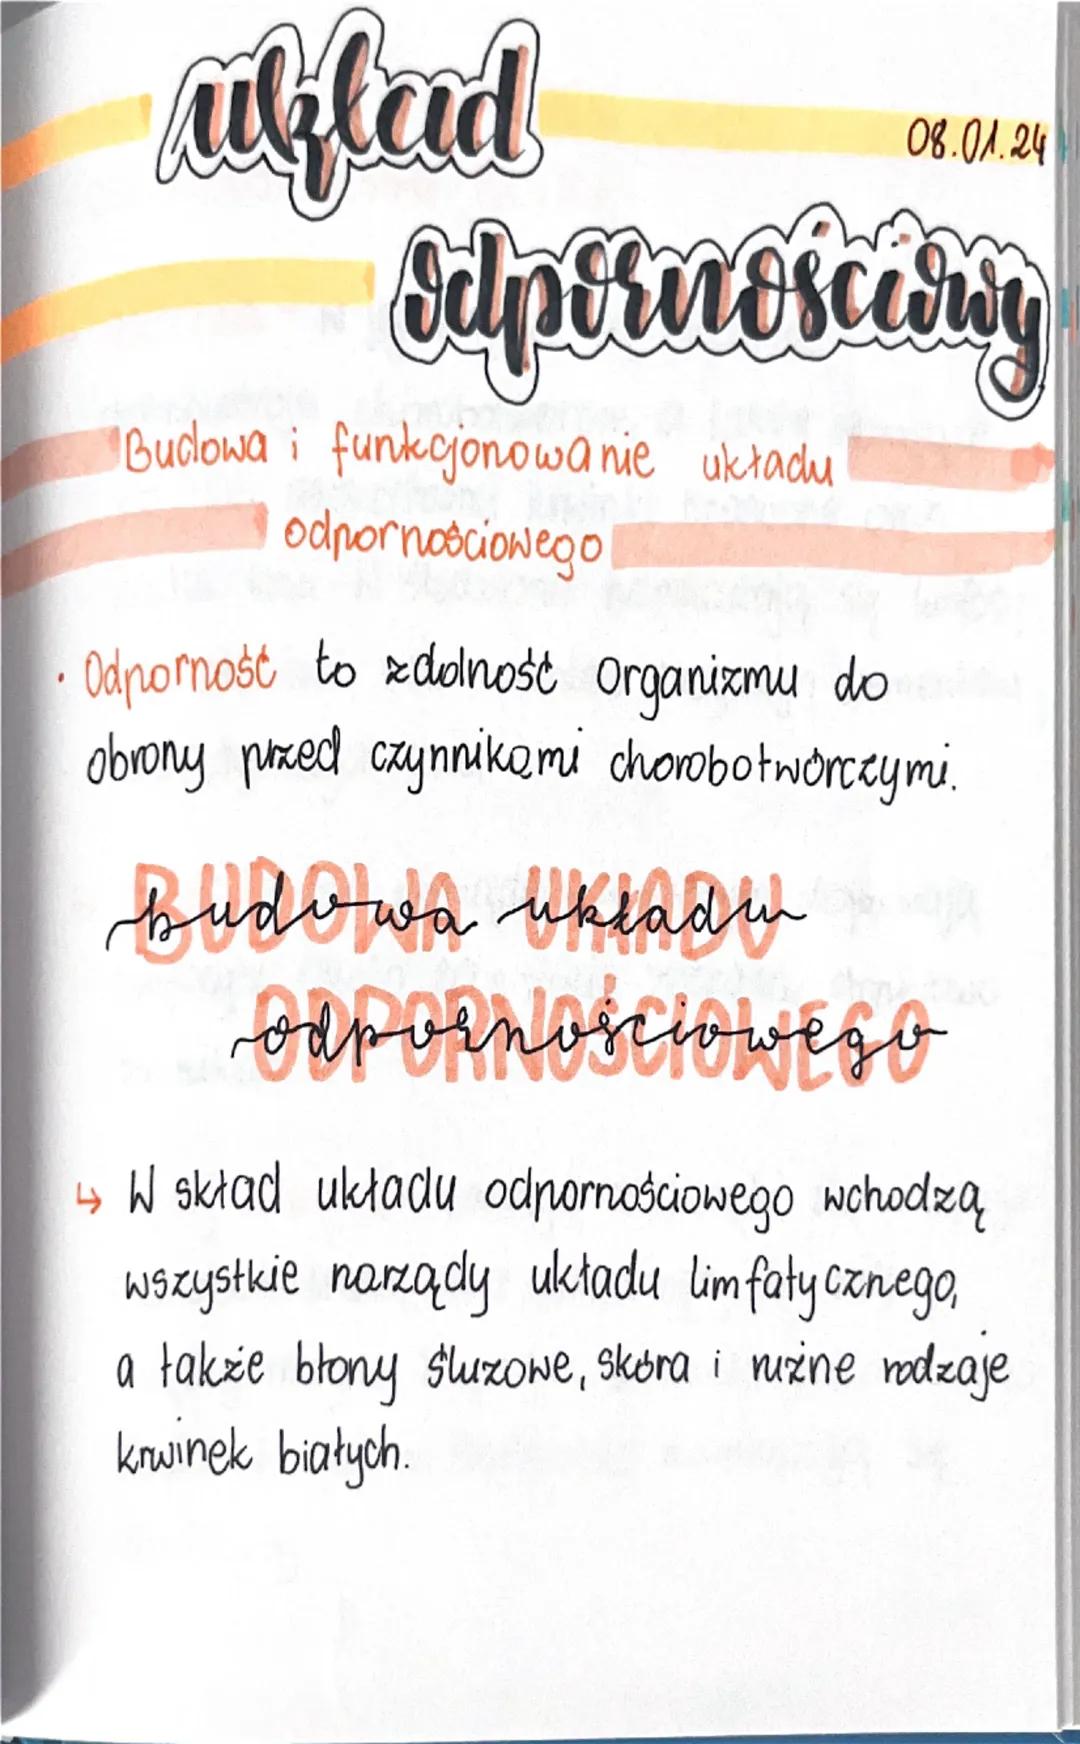 układ
08.01.24
odpornościowy
Budowa i funkcjonowanie układu
odpornościowego
· Odporność to zdolność organizmu do
obrony przed czynnikami chorobotwórczymi.
BUDOWA UKŁADU
budowa układu
ODPORNOŚCIOWEGO
odpornościowego
↳ W skład układu odpornościowego wchodzą
wszystkie narządy układu limfatycznego,
a także błony śluzowe, skóra i różne rodzaje
krwinek białych.